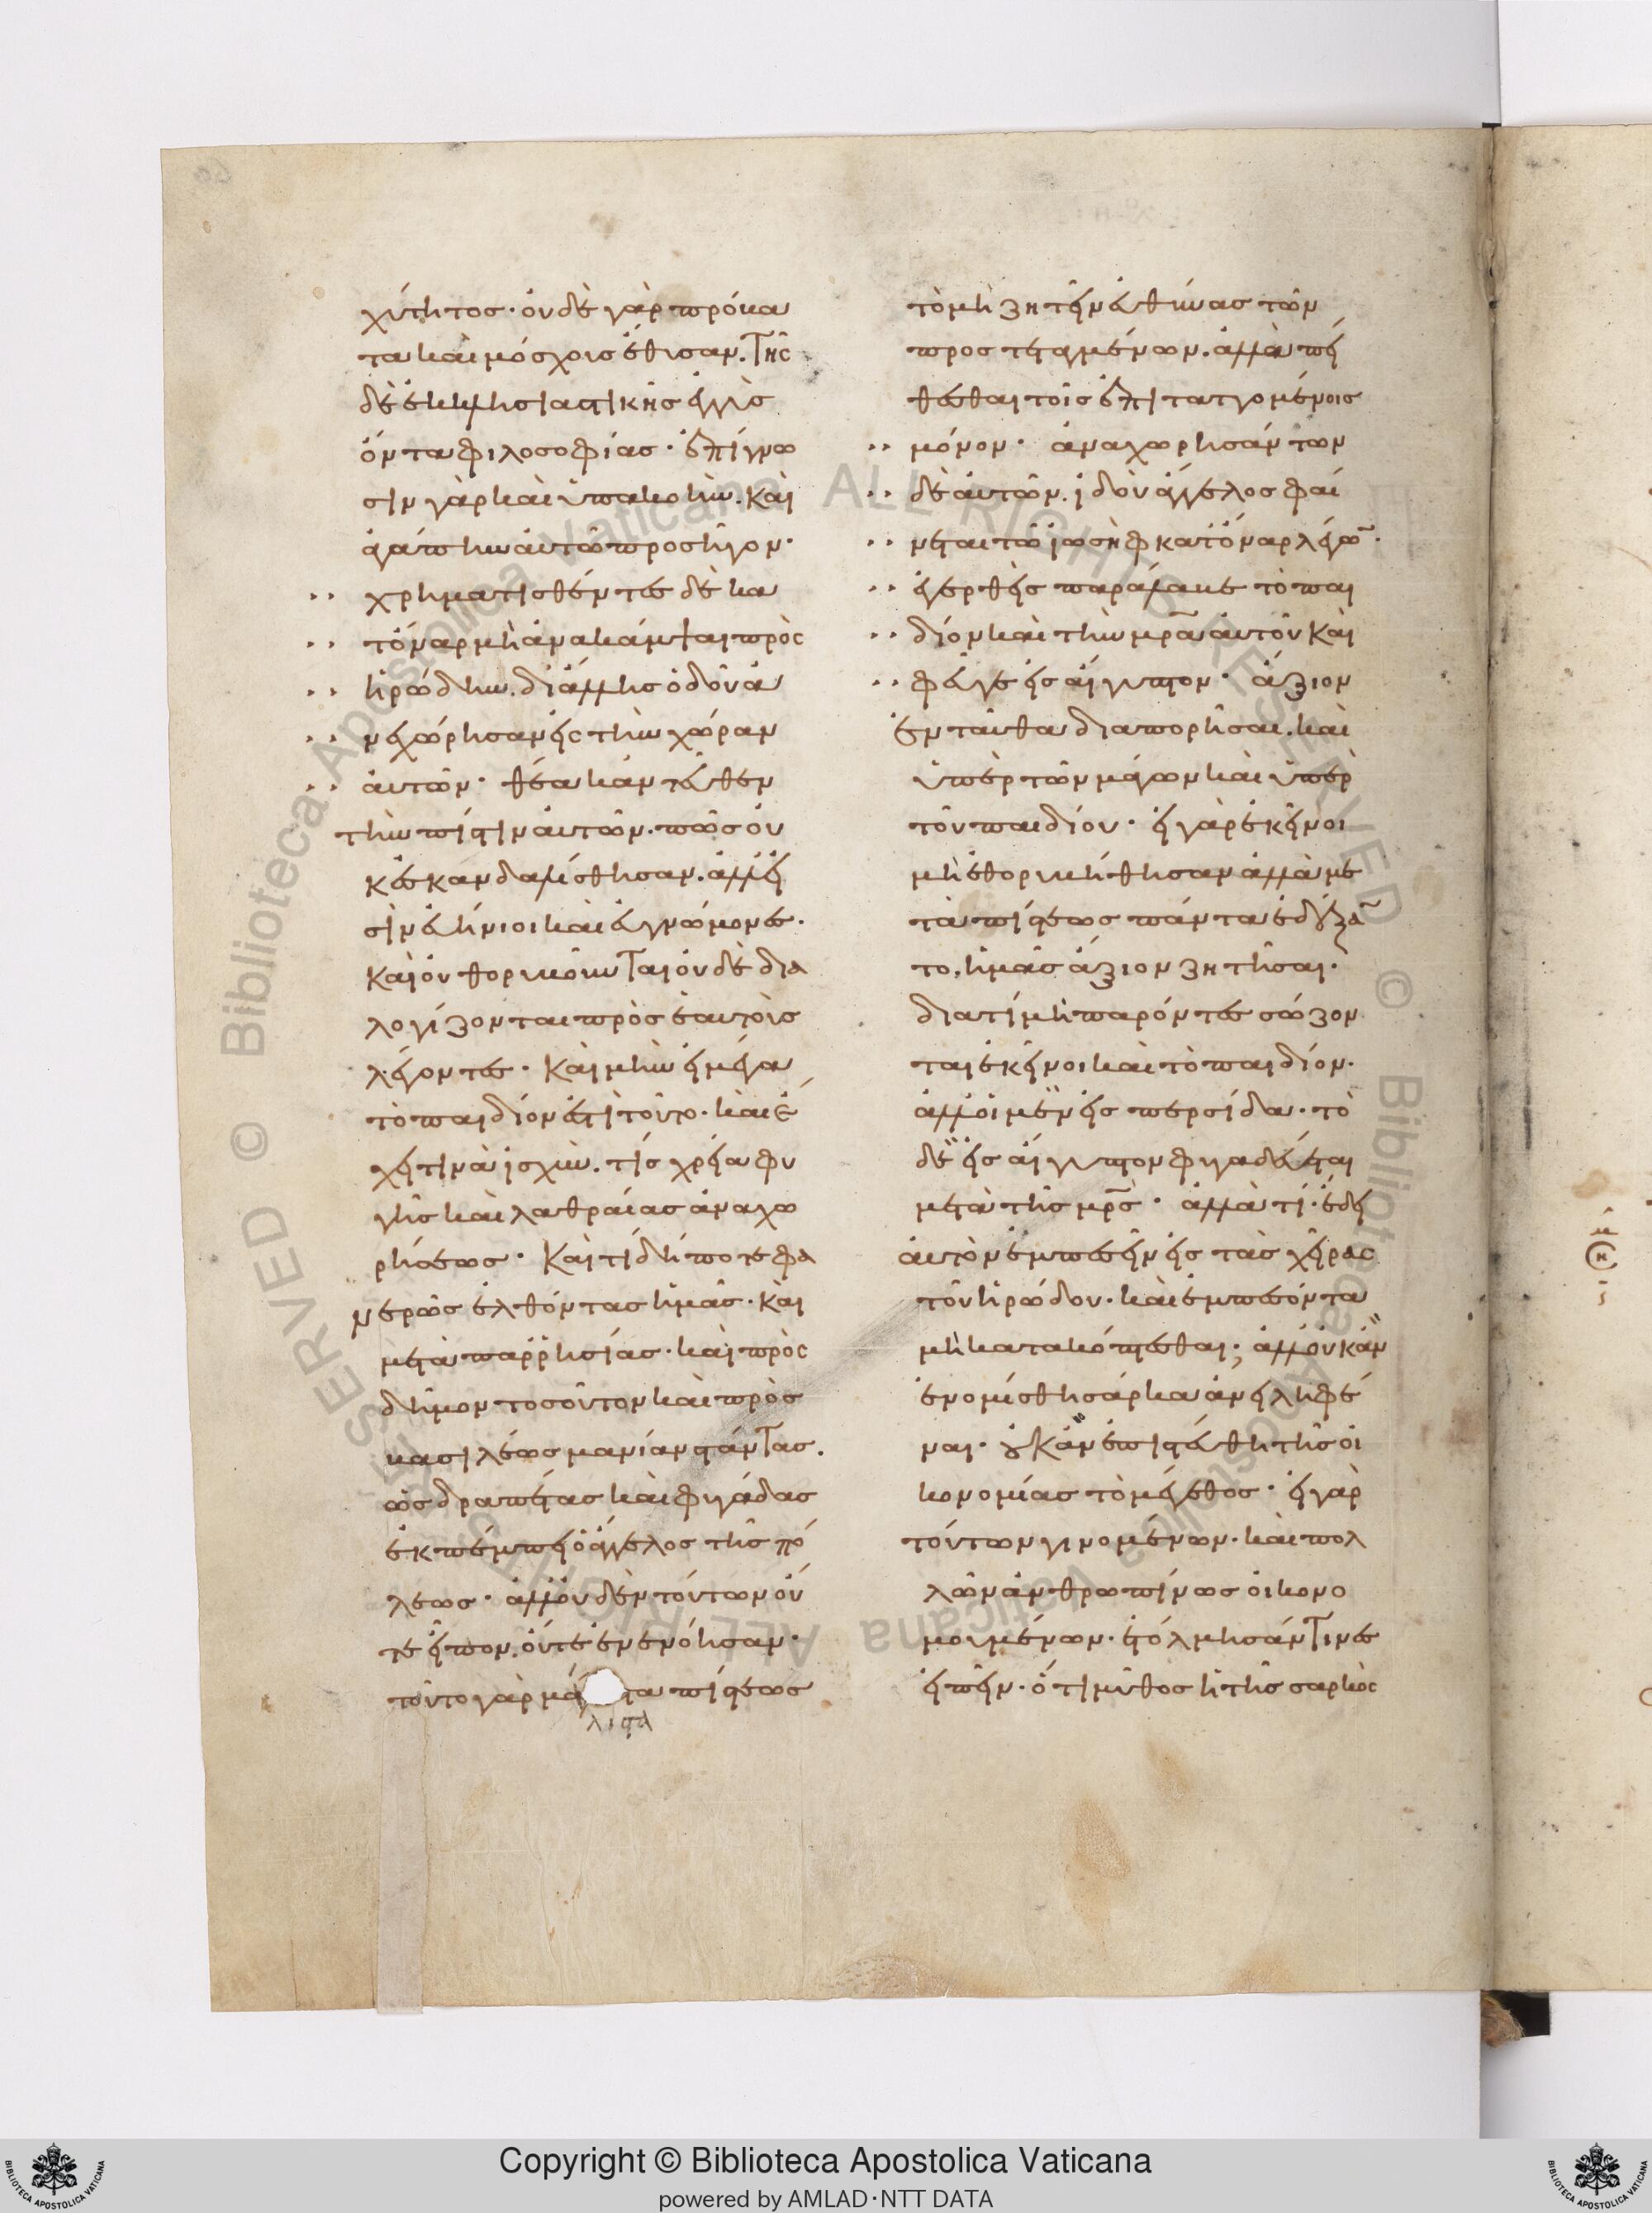 χύτητος· οὐδὲ γὰρ πρόβα
τα καὶ μόσχοις ἔθυσαν. Τῆς
δὲ ἐκκλησιαστικῆς ἐγγὺς
ὄντα φιλοσοφίας· ἐπίγνω
σιν γὰρ καὶ ὑπακοὴν. καὶ
ἀγάπην αὐτῶ προσῆγον·
χρηματισθέντες δὲ κα
τ' ὄναρ μὴ ἀνακάμψαι πρὸς
ἡρώδην. δι' ἄλλης ὁδοῦ ἀ
νεχώρησαν εἰς τὴν χώραν
αὐτῶν· θέα κἀντεῦθεν
τὴν πίστιν αὐτῶν. πῶς οὐ
κ ἐσκανδαλίσθησαν. ἀλλ' εἰ
σὶν εὐήνιοι καὶ εὐγνώμονες.
καὶ οὐ θορυβοῦνται οὐδὲ δια
λογίζονται πρὸς ἑαυτοὺς
λέγοντες· καὶ μὴν εἰ μέγα
τὸ παιδίον ἐστὶ τοῦτο. καὶ ἔ
χει τινὰ ἰσχὺν. τίς χρεία φυ
γῆς καὶ λαθραίας ἀναχω
ρήσεως· καὶ τί δήποτε φα
νερῶς ἐλθόντας ἡμᾶς. καὶ
μετὰ παρρησίας. καὶ πρὸς
δῆμον τοσοῦτον καὶ πρὸς
βασιλέως μανίαν στάντας.
ὡς δραπέτας καὶ φυγάδας
ἐκπέμπει ὁ ἄγγελος τῆς πό
λεως· ἀλλ' οὐδὲν τούτων οὔ
τε εἶπον. οὔτε ἐνενόησαν·
τοῦτο γὰρ μά τα πίστεως
λιστα
τὸ μὴ ζητεῖν εὐθύνας τῶν
προστεταγμένων. ἀλλὰ πεί
θεσθαι τοῖς ἐπιταττομένοις
μόνον· ἀναχωρησάντων
δὲ αὐτῶν. ἰδοὺ ἄγγελος φαί
νεται τῶ ἰωσὴφ κατ' ὄναρ λέγων·
ἐγερθεὶς παράλαβε τὸ παι
δίον καὶ τὴν μρα αὐτοῦ καὶ
φεῦγε εἰς αἴγυπτον· ἄξιον
ἐνταῦθα διαπορῆσαι. καὶ
ὑπὲρ τῶν μάγων καὶ ὑπὲρ
τοῦ παιδίου· εἰ γὰρ ἐκεῖνοι
μὴ ἐθορυβήθησαν ἀλλὰ με
τὰ πίστεως πάντα ἐδέξαν
το. ἡμᾶς ἄξιον ζητῆσαι·
διατί μὴ παρόντες σώζον
ται ἐκεῖνοι καὶ τὸ παιδίον.
ἀλλ' οἱ μὲν εἰς περσίδα· τὸ
δὲ εἰς αἴγυπτον φυγαδεύεται
μετὰ τῆς μρς· ἀλλὰ τί· ἔδει
αὐτὸν ἐμπεσεῖν εἰς τὰς χεῖρας
τοῦ ἡρώδου. καὶ ἐμπεσόντα
μὴ κατακόπτεσθαι; ἀλλ' οὐκ ἂν
ἐνομίσθη σάρκα ἀνειληφέ
ναι· οὐκ ἂν ἐπιστεύθη τῆς οἰ
κονομίας τὸ μέγεθος· εἰ γὰρ
τούτων γινομένων. καὶ πολ
λῶν ἀνθρωπίνως οἰκονο
μουμένων. ἐτόλμησάν τινες
εἰπεῖν· ὅτι μῦθος ἡ τῆς σαρκὸς
Copyright © Biblioteca Apostolica Vaticana
powered by AMLAD·NTT DATA